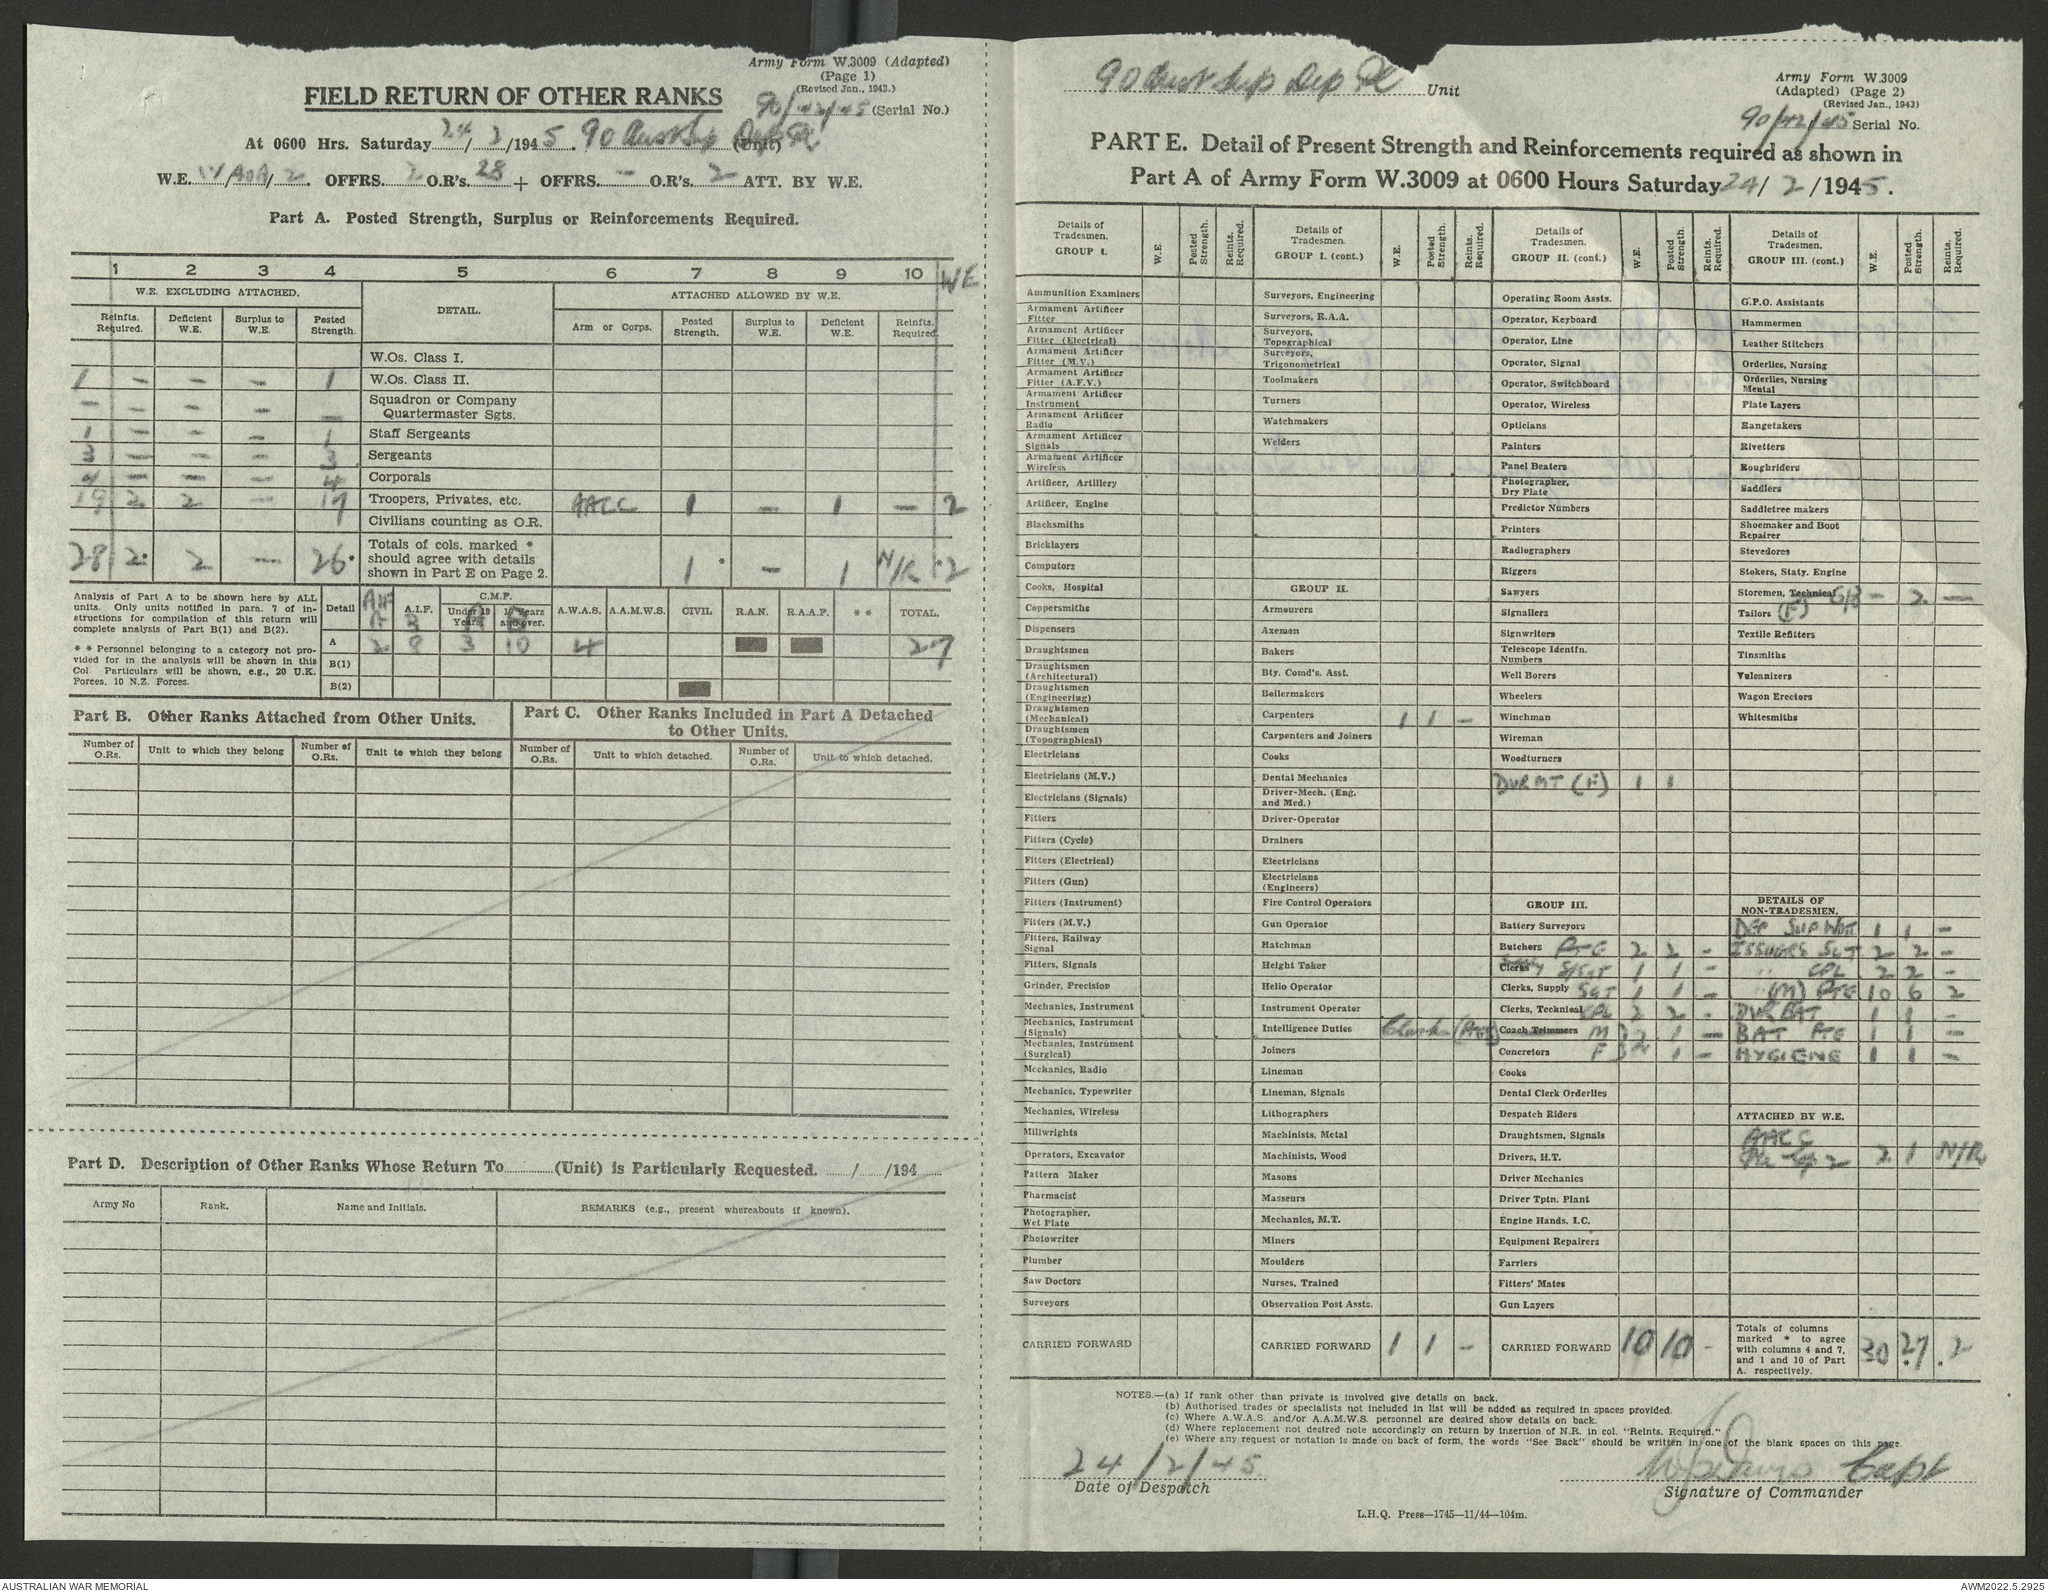 Army Form W.3009 (Adapted)
(Page 1)
(Revised Jan., 1943.)
FIELD RETURN OF OTHER RANKS
90/ /45 (Serial No.)
At 0600 Hrs. Saturday 24/2/1945. 90 Aust Sup Dep Pl (Unit)
W.E. /A0A/2. OFFRS. 2 O.R's. 28 + OFFRS. — O.R's. 2 ATT. BY W.E.
Part A. Posted Strength, Surplus or Reinforcements Required.
1 2 3 4 5 6 7 8 9 10 WE
W.E. EXCLUDING ATTACHED. DETAIL. ATTACHED ALLOWED BY W.E.
Reinfts. Required. Deficient W.E. Surplus to W.E. Posted Strength. Arm or Corps. Posted Strength. Surplus to W.E. Deficient W.E. Reinfts. Required.
W.Os. Class I.
1 - - - 1 W.Os. Class II.
- - - - - Squadron or Company Quartermaster Sgts.
1 - - - 1 Staff Sergeants
3 - - - 3 Sergeants
4 - - - 4 Corporals
19 2 2 - 17 Troopers, Privates, etc. AACC 1 - 1 - 2
Civilians counting as O.R.
28 2* 2 - 26* Totals of cols. marked * should agree with details shown in Part E on Page 2. 1 * - 1 N/R * 2
Analysis of Part A to be shown here by ALL
units. Only units notified in para. 7 of in-
structions for compilation of this return will
complete analysis of Part B(1) and B(2).
* * Personnel belonging to a category not pro-
vided for in the analysis will be shown in this
Col. Particulars will be shown, e.g., 20 U.K.
Forces, 10 N.Z. Forces.
Detail AIF A A.I.F. B C.M.F. Under 19 Years A 19 Years and over. B A.W.A.S. A.A.M.W.S. CIVIL R.A.N. R.A.A.F. * * TOTAL.
A 2 8 3 10 4 27
B(1)
B(2)
Part B. Other Ranks Attached from Other Units.
Part C. Other Ranks Included in Part A Detached
to Other Units.
Number of O.Rs. Unit to which they belong Number of O.Rs. Unit to which they belong Number of O.Rs. Unit to which detached. Number of O.Rs. Unit to which detached.
Part D. Description of Other Ranks Whose Return To (Unit) is Particularly Requested. / /194
Army No Rank. Name and Initials. REMARKS (e.g., present whereabouts if known).
90 Aust Sup Dep Pl Unit
Army Form W.3009
(Adapted) (Page 2)
(Revised Jan., 1943)
90/ /45 Serial No.
PART E. Detail of Present Strength and Reinforcements required as shown in
Part A of Army Form W.3009 at 0600 Hours Saturday 24/2/1945.
Details of Tradesmen. GROUP I. W.E. Posted Strength. Reints. Required.
Ammunition Examiners
Armament Artificer Fitter
Armament Artificer Fitter (Electrical)
Armament Artificer Fitter (M.V.)
Armament Artificer Fitter (A.F.V.)
Armament Artificer Instrument
Armament Artificer Radio
Armament Artificer Signals
Armament Artificer Wireless
Artificer, Artillery
Artificer, Engine
Blacksmiths
Bricklayers
Computors
Cooks, Hospital
Coppersmiths
Dispensers
Draughtsmen
Draughtsmen (Architectural)
Draughtsmen (Engineering)
Draughtsmen (Mechanical)
Draughtsmen (Topographical)
Electricians
Electricians (M.V.)
Electricians (Signals)
Fitters
Fitters (Cycle)
Fitters (Electrical)
Fitters (Gun)
Fitters (Instrument)
Fitters (M.V.)
Fitters, Railway Signal
Fitters, Signals
Grinder, Precision
Mechanics, Instrument
Mechanics, Instrument (Signals)
Mechanics, Instrument (Surgical)
Mechanics, Radio
Mechanics, Typewriter
Mechanics, Wireless
Millwrights
Operators, Excavator
Pattern Maker
Pharmacist
Photographer, Wet Plate
Photowriter
Plumber
Saw Doctors
Surveyors
CARRIED FORWARD
Details of Tradesmen. GROUP I. (cont.) W.E. Posted Strength. Reints. Required.
Surveyors, Engineering
Surveyors, R.A.A.
Surveyors, Topographical
Surveyors, Trigonometrical
Toolmakers
Turners
Watchmakers
Welders
GROUP II.
Armourers
Axemen
Bakers
Bty. Comd's. Asst.
Boilermakers
Carpenters 1 1 -
Carpenters and Joiners
Cooks
Dental Mechanics
Driver-Mech. (Eng. and Med.)
Driver-Operator
Drainers
Electricians
Electricians (Engineers)
Fire Control Operators
Gun Operator
Hatchman
Height Taker
Helio Operator
Instrument Operator
Intelligence Duties
Joiners
Lineman
Lineman, Signals
Lithographers
Machinists, Metal
Machinists, Wood
Masons
Masseurs
Mechanics, M.T.
Miners
Moulders
Nurses, Trained
Observation Post Assts.
CARRIED FORWARD 1 1 -
Details of Tradesmen. GROUP II. (cont.) W.E. Posted Strength. Reints. Required.
Operating Room Assts.
Operator, Keyboard
Operator, Line
Operator, Signal
Operator, Switchboard
Operator, Wireless
Opticians
Painters
Panel Beaters
Photographer, Dry Plate
Predictor Numbers
Printers
Radiographers
Riggers
Sawyers
Signallers
Signwriters
Telescope Identfn. Numbers
Well Borers
Wheelers
Winchman
Wireman
Woodturners
DVR MT (F) 1 1
GROUP III.
Battery Surveyors
Butchers PTE 2 2 -
Clerks Supply S/SGT 1 1 -
Clerks, Supply SGT 1 1 -
Clerks, Technical CPL 2 2 -
Clerks (Ptes) Coach Trimmers M } 2 1 -
Concretors F } 1 -
Cooks
Dental Clerk Orderlies
Despatch Riders
Draughtsmen, Signals
Drivers, H.T.
Driver Mechanics
Driver Tptn. Plant
Engine Hands, I.C.
Equipment Repairers
Farriers
Fitters' Mates
Gun Layers
CARRIED FORWARD 10 10 -
Details of Tradesmen. GROUP III. (cont.) W.E. Posted Strength. Reints. Required.
G.P.O. Assistants
Hammermen
Leather Stitchers
Orderlies, Nursing
Orderlies, Nursing Mental
Plate Layers
Rangetakers
Rivetters
Roughriders
Saddlers
Saddletree makers
Shoemaker and Boot Repairer
Stevedores
Stokers, Staty. Engine
Storemen, Technical - 2 -
Tailors (F)
Textile Refitters
Tinsmiths
Vulcanizers
Wagon Erectors
Whitesmiths
DETAILS OF NON-TRADESMEN.
DEP SUP 1 1 -
ISSUERS SGT 2 2 -
" CPL 2 2 -
" (M) PTE 10 6 2
DVR BAT 1 1 -
BAT PTE 1 1 -
HYGIENE 1 1 -
ATTACHED BY W.E.
AACC
2 1 N/R
Totals of columns marked * to agree with columns 4 and 7, and 1 and 10 of Part A. respectively. 30 27* *2
NOTES.—(a) If rank other than private is involved give details on back.
(b) Authorised trades or specialists not included in list will be added as required in spaces provided.
(c) Where A.W.A.S. and/or A.A.M.W.S. personnel are desired show details on back.
(d) Where replacement not desired note accordingly on return by insertion of N.R. in col. "Reints. Required."
(e) Where any request or notation is made on back of form, the words "See Back" should be written in one of the blank spaces on this page.
24/2/45
Date of Despatch
Capt
Signature of Commander
L.H.Q. Press—1745—11/44—104m.
AUSTRALIAN WAR MEMORIAL
AWM2022.5.2925